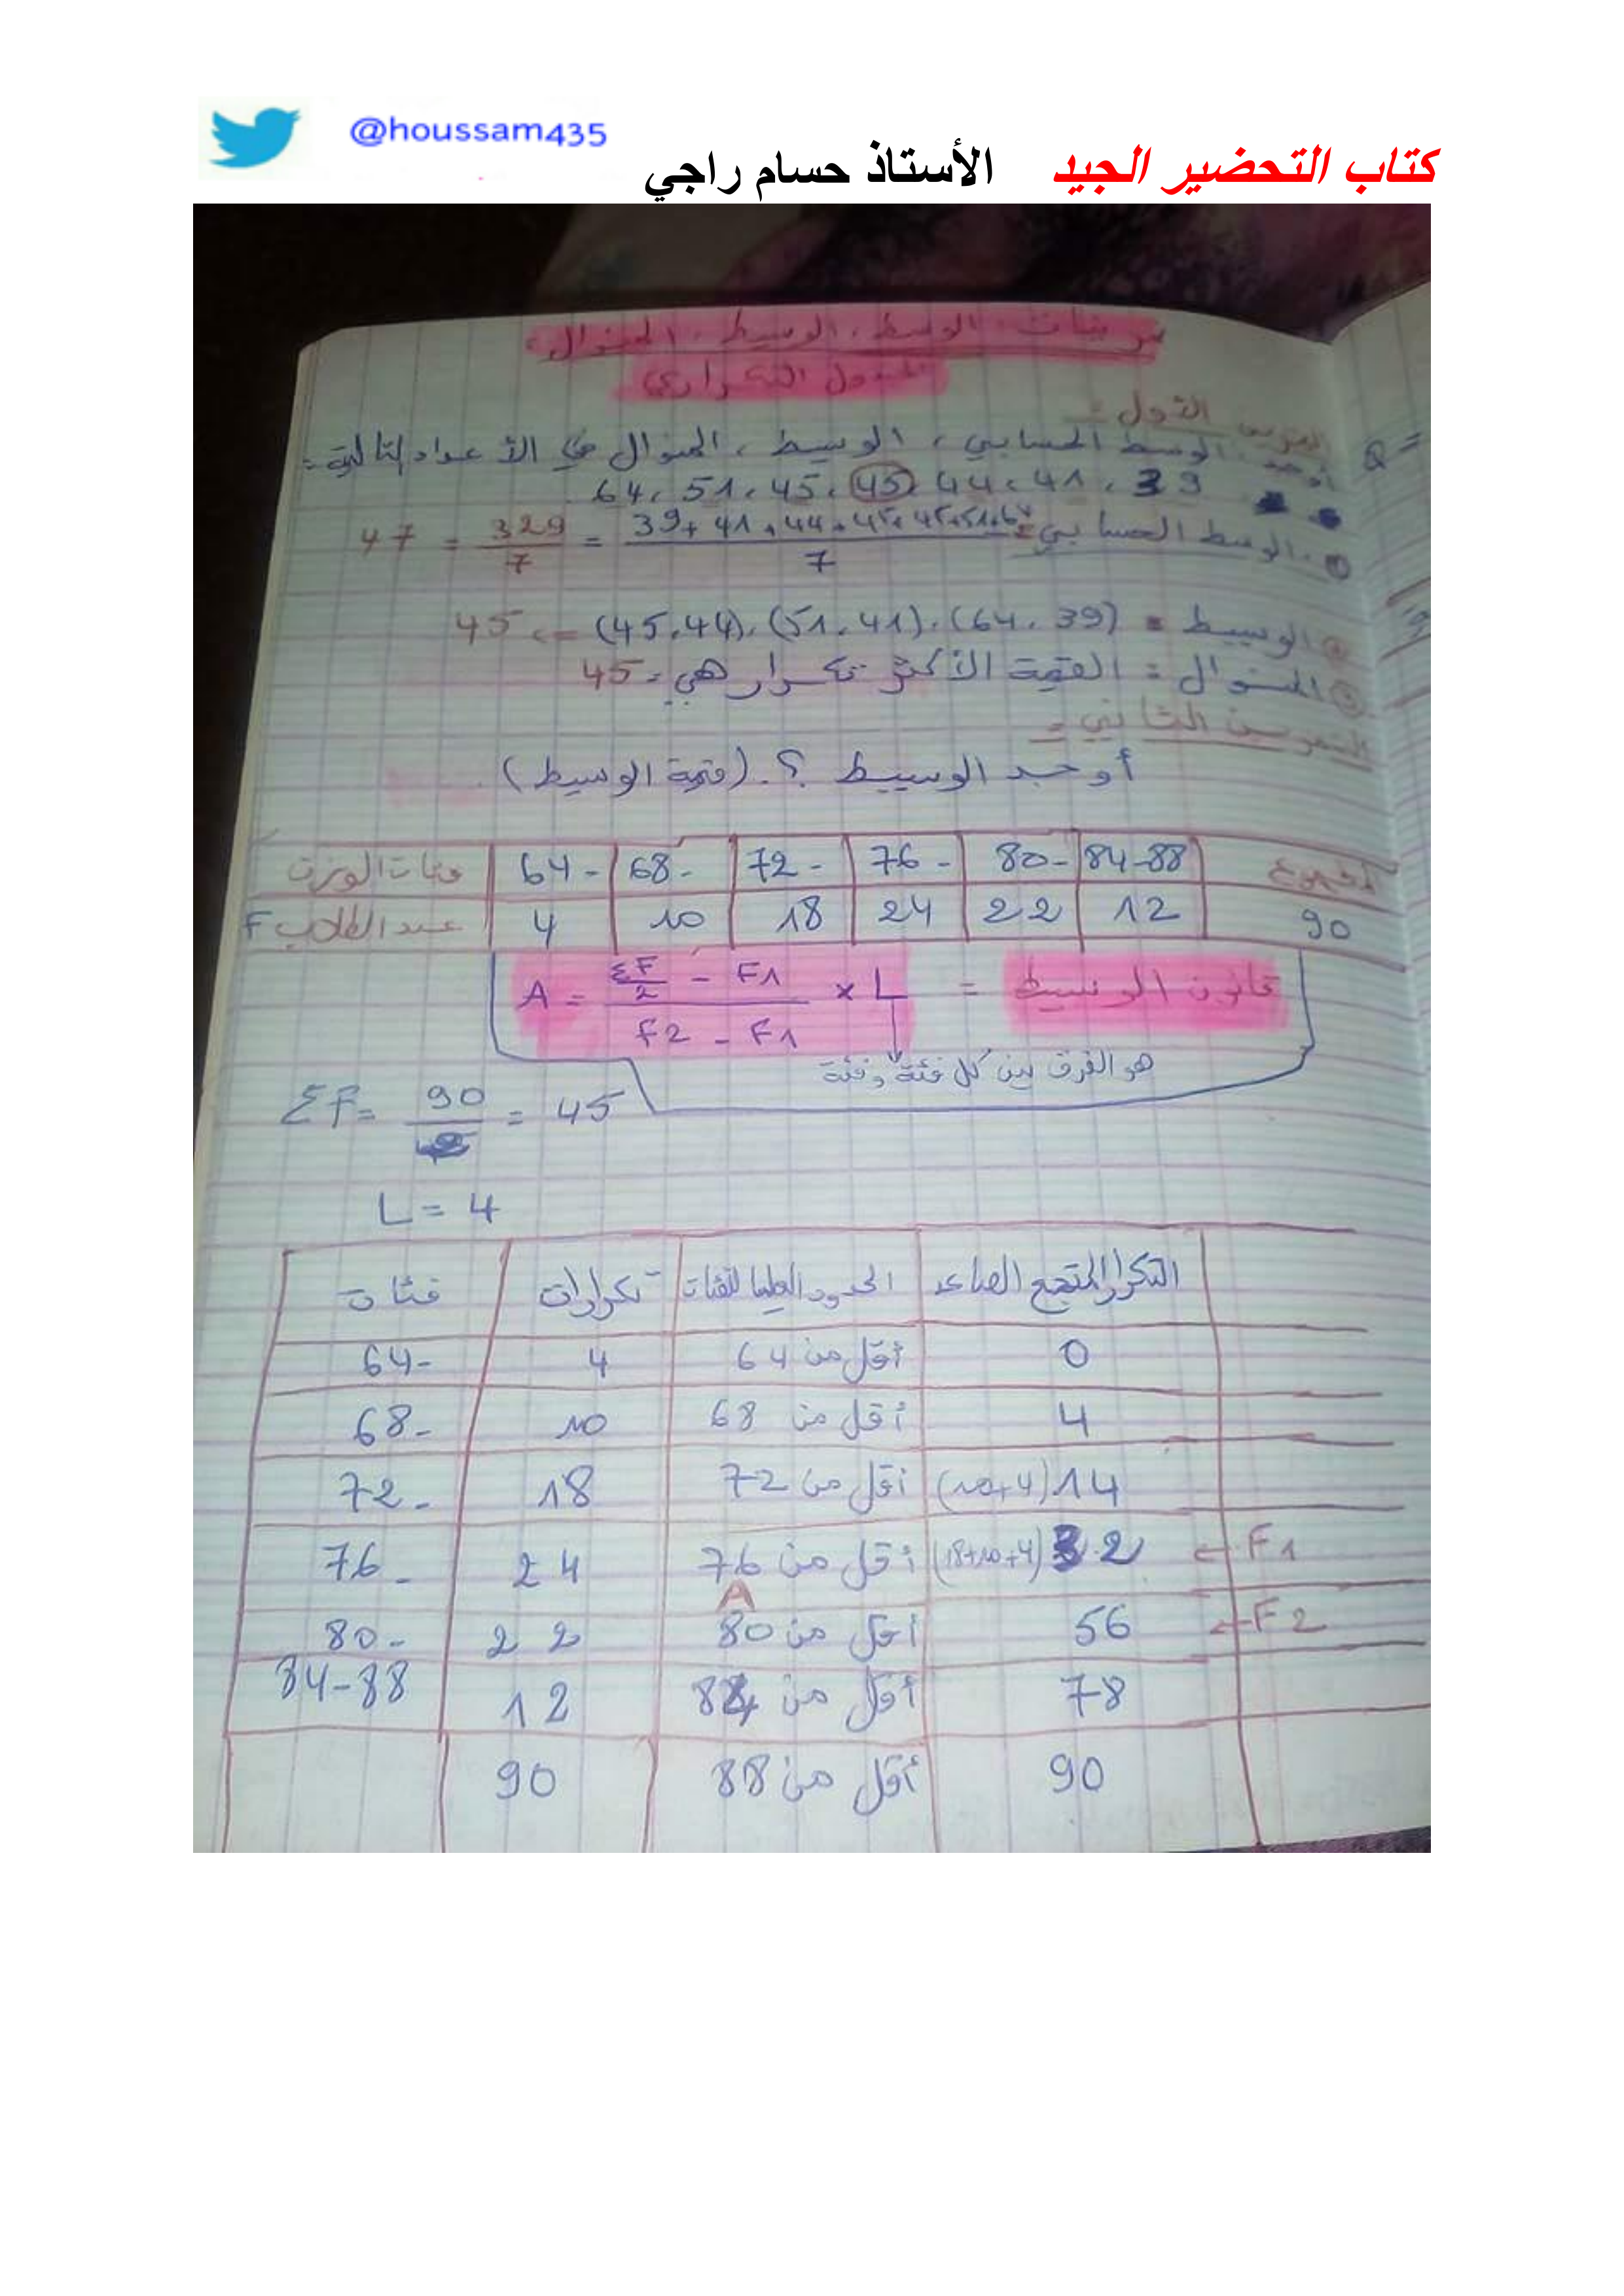 @houssam435
كتاب التحضير الجيد الأستاذ حسام راجي
تمرينات الوسط، الوسيط، المنوال،
الجدول التكراري
التمرين الأول =
أوجد الوسط الحسابي، الوسيط، المنوال في الأعداد التالية =
64، 51، 45، 45، 44، 41، 39
الوسط الحسابي = 39+41+44+45+45+51+64 / 7 = 329 / 7 = 47
② الوسيط = (64، 39)، (51، 41)، (45، 44) => 45
③ المنوال = القيمة الأكثر تكرار هي = 45
التمرين الثاني =
أوجد الوسيط ؟. (قيمة الوسيط)
فئات الوزن 64- 68- 72- 76- 80- 84-88 المجموع
عدد الطلاب F 4 10 18 24 22 12 90
قانون الوسيط = A = ΣF/2 - F1 / F2 - F1 × L
هو الفرق بين كل فئة وفئة
ΣF = 90 = 45
L = 4
فئات تكرارات الحدود العليا للفئات التكرار المتجمع الصاعد
64- 4 أقل من 64 0
68- 10 أقل من 68 4
72- 18 أقل من 72 14 (10+4)
76- 24 أقل من 76 32 (18+10+4) ← F1
A
80- 22 أقل من 80 56 ← F2
84-88 12 أقل من 84 78
90 أقل من 88 90